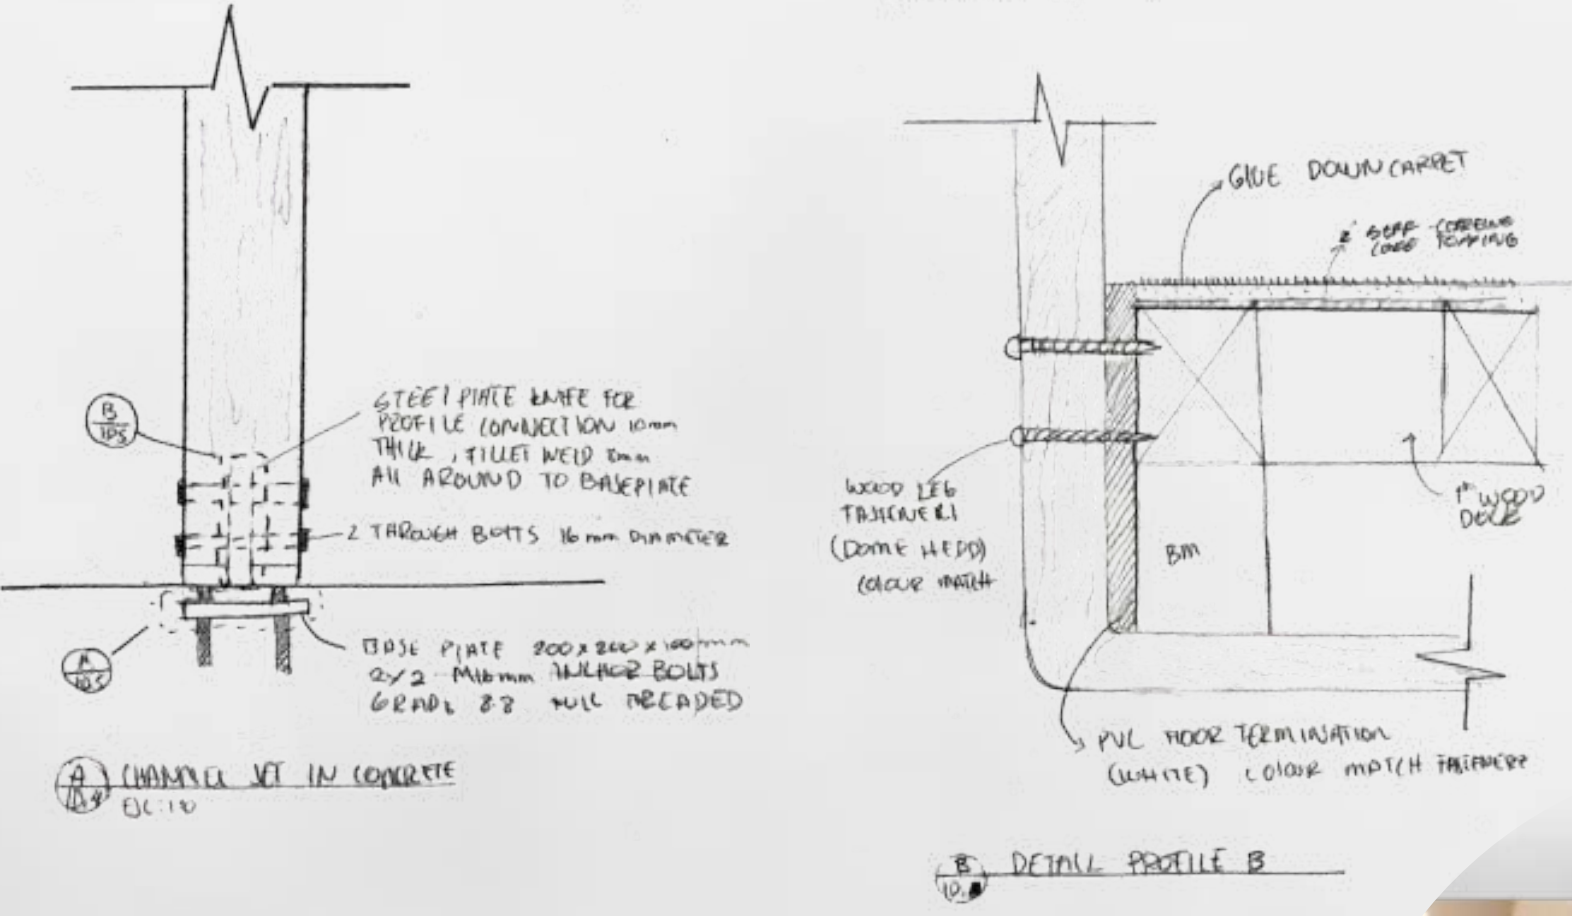 B
105
STEEL PLATE KNIFE FOR
PROFILE CONNECTION 10mm
THICK, FILLET WELD 8mm
ALL AROUND TO BASEPLATE
2 THROUGH BOLTS 16mm DIAMETER
BASE PLATE 200x200x100mm
2x2 M16mm ANCHOR BOLTS
GRADE 8.8 FULL
A
105
A
CHANNEL SET IN CONCRETE
GLUE DOWN CARPET
TOPPING
WOOD LEG
FASTENERS
(DOME HEAD)
COLOUR MATCH
BM
1" WOOD
DECK
PVC FLOOR TERMINATION
(WHITE) COLOUR MATCH FASTENERS
B
DETAIL PROFILE B